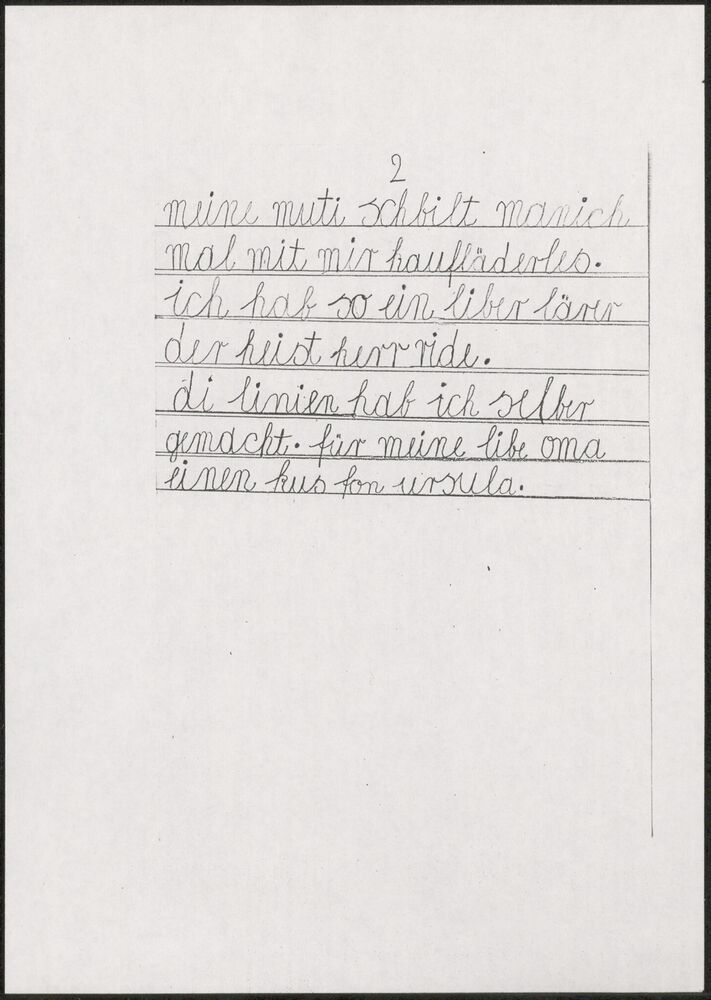 2
meine muti schbilt manich
mal mit mir kaufläderles.
ich hab so ein liber lärer
der heist herr ride.
di linien hab ich selber
gemacht. für meine libe oma
einen kus fon ursula.